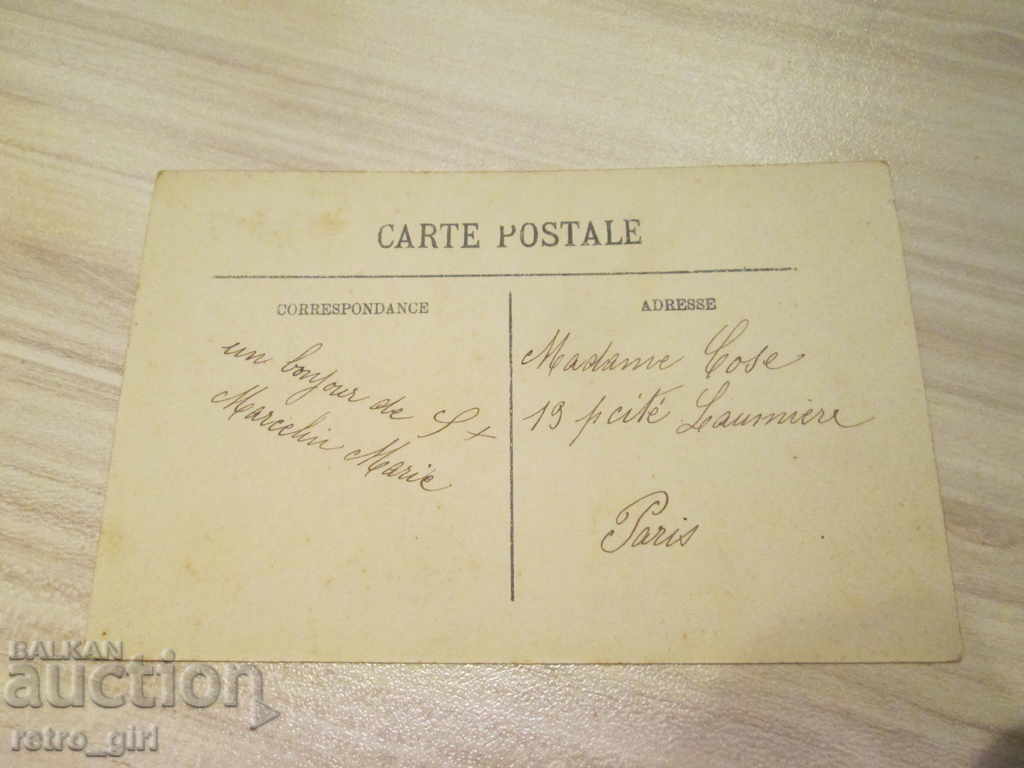 CARTE POSTALE
CORRESPONDANCE
un bonjour de St
Marcelin Marie
ADRESSE
Madame Cose
19 cité Laumière
Paris
BALKAN
auction
retro_girl